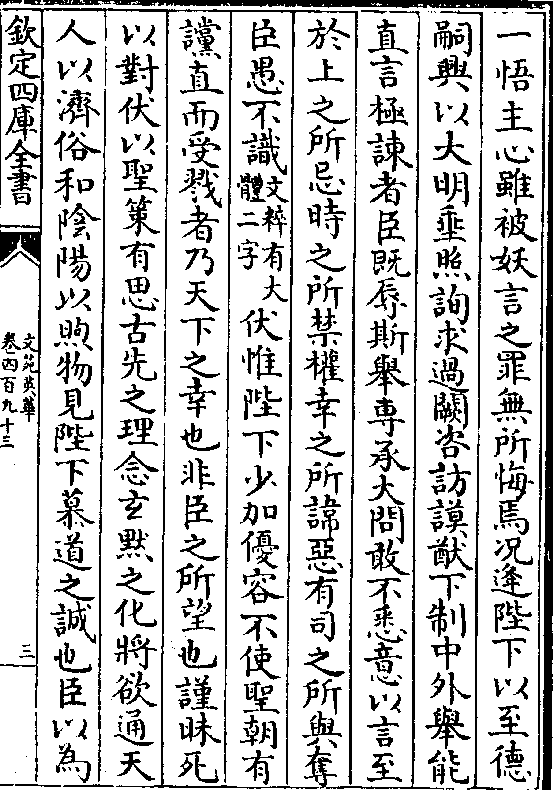 一悟主心雖被妖言之罪無所悔焉况逢陛下以至德
嗣興以大明垂照詢求過闕咨訪謨猷下制中外舉能
直言極諫者臣既辱斯舉專承大問敢不悉意以言至
於上之所忌時之所禁權幸之所諱惡有司之所與奪
臣愚不識文粹有大體二字伏惟陛下少加優容不使聖朝有
讜直而受戮者乃天下之幸也非臣之所望也謹昧死
以對伏以聖策有思古先之理念玄默之化將欲通天
人以濟俗和陰陽以煦物見陛下慕道之誠也臣以為
欽定四庫全書
文苑英華
卷四百九十三
三